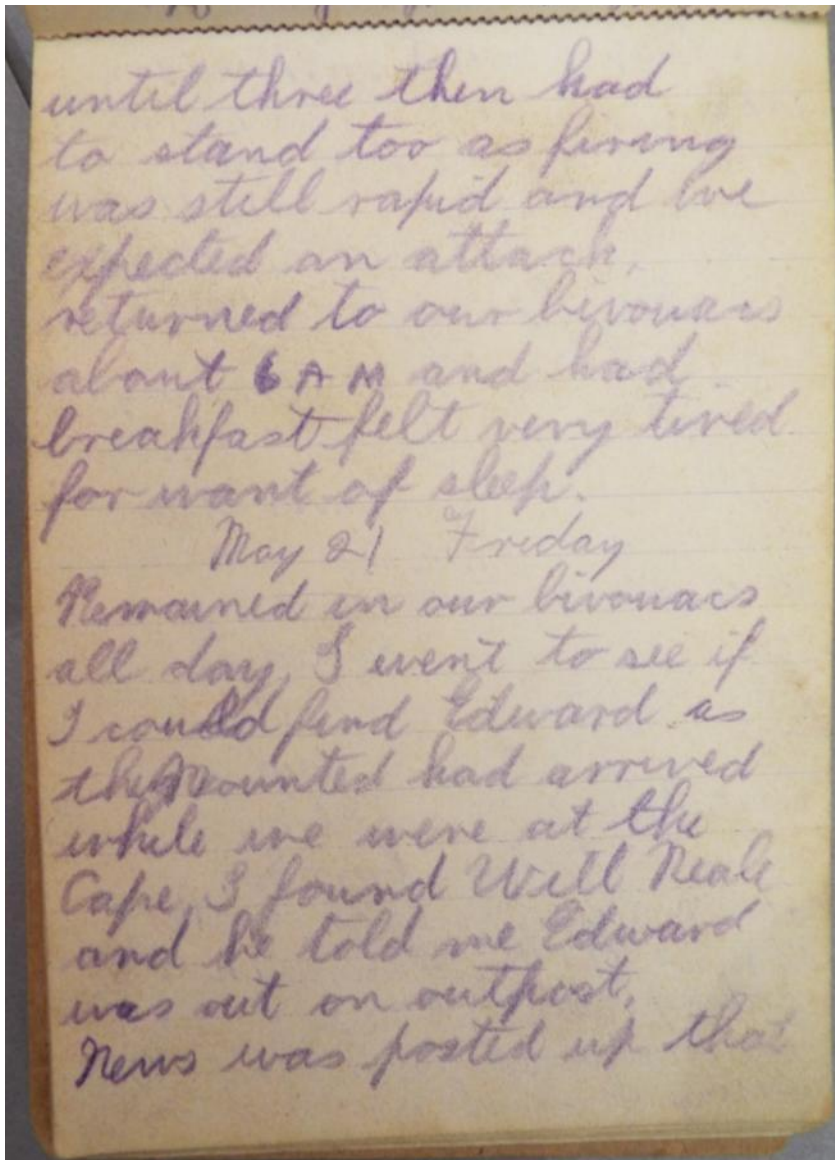 until three then had
to stand too as firing
was still rapid and we
expected an attack,
returned to our bivouacs
about 6 AM and had
breakfast felt very tired
for want of sleep.
May 21 Friday
Remained in our bivouacs
all day, I went to see if
I could find Edward as
the Mounted had arrived
while we were at the
Cape, I found Will Neale
and he told me Edward
was out on outpost,
News was posted up that